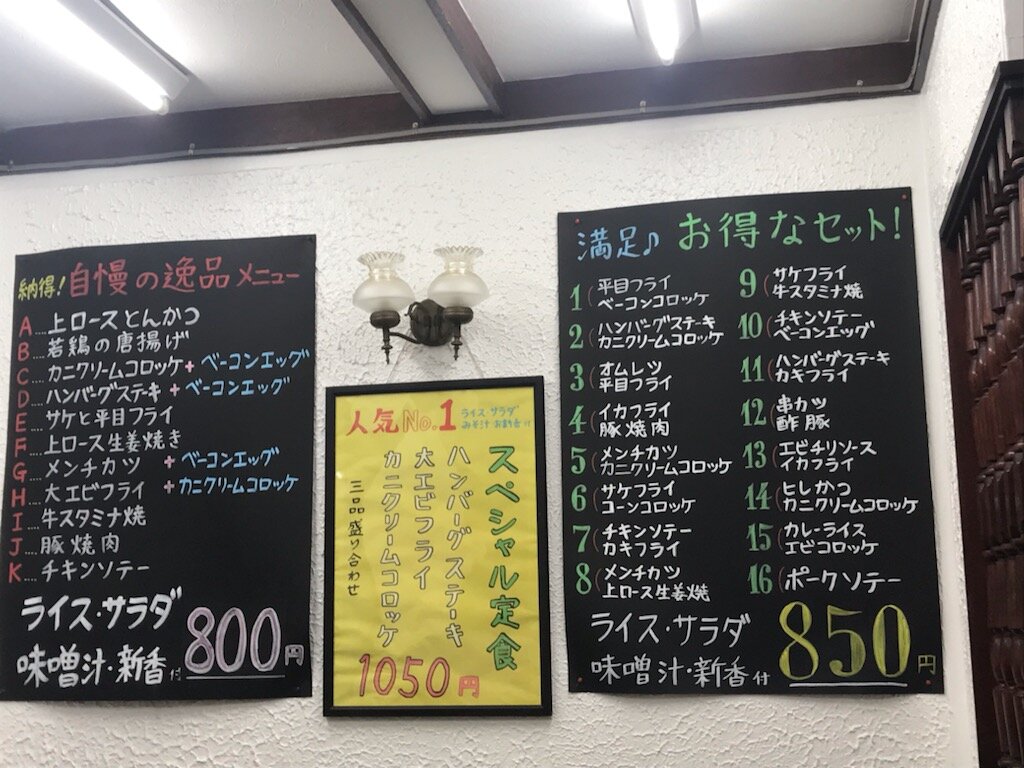 納得! 自慢の逸品メニュー
A....上ロースとんかつ
B....若鶏の唐揚げ
C....カニクリームコロッケ+ベーコンエッグ
D....ハンバーグステーキ+ベーコンエッグ
E....サケと平目フライ
F....上ロース生姜焼き
G....メンチカツ +ベーコンエッグ
H....大エビフライ +カニクリームコロッケ
I....牛スタミナ焼
J....豚焼肉
K....チキンソテー
ライス・サラダ
味噌汁・新香付 800円
人気No.1
ライス サラダ
みそ汁・お新香付
スペシャル定食
ハンバーグステーキ
大エビフライ
カニクリームコロッケ
三品盛り合わせ
1050円
満足♪ お得なセット!
1 平目フライ
ベーコンコロッケ
2 ハンバーグステーキ
カニクリームコロッケ
3 オムレツ
平目フライ
4 イカフライ
豚焼肉
5 メンチカツ
カニクリームコロッケ
6 サケフライ
コーンコロッケ
7 チキンソテー
カキフライ
8 メンチカツ
上ロース生姜焼
9 サケフライ
牛スタミナ焼
10 チキンソテー
ベーコンエッグ
11 ハンバーグステーキ
カキフライ
12 串カツ
酢豚
13 エビチリソース
イカフライ
14 ヒレかつ
カニクリームコロッケ
15 カレーライス
エビコロッケ
16 ポークソテー
ライス・サラダ
味噌汁・新香付 850円